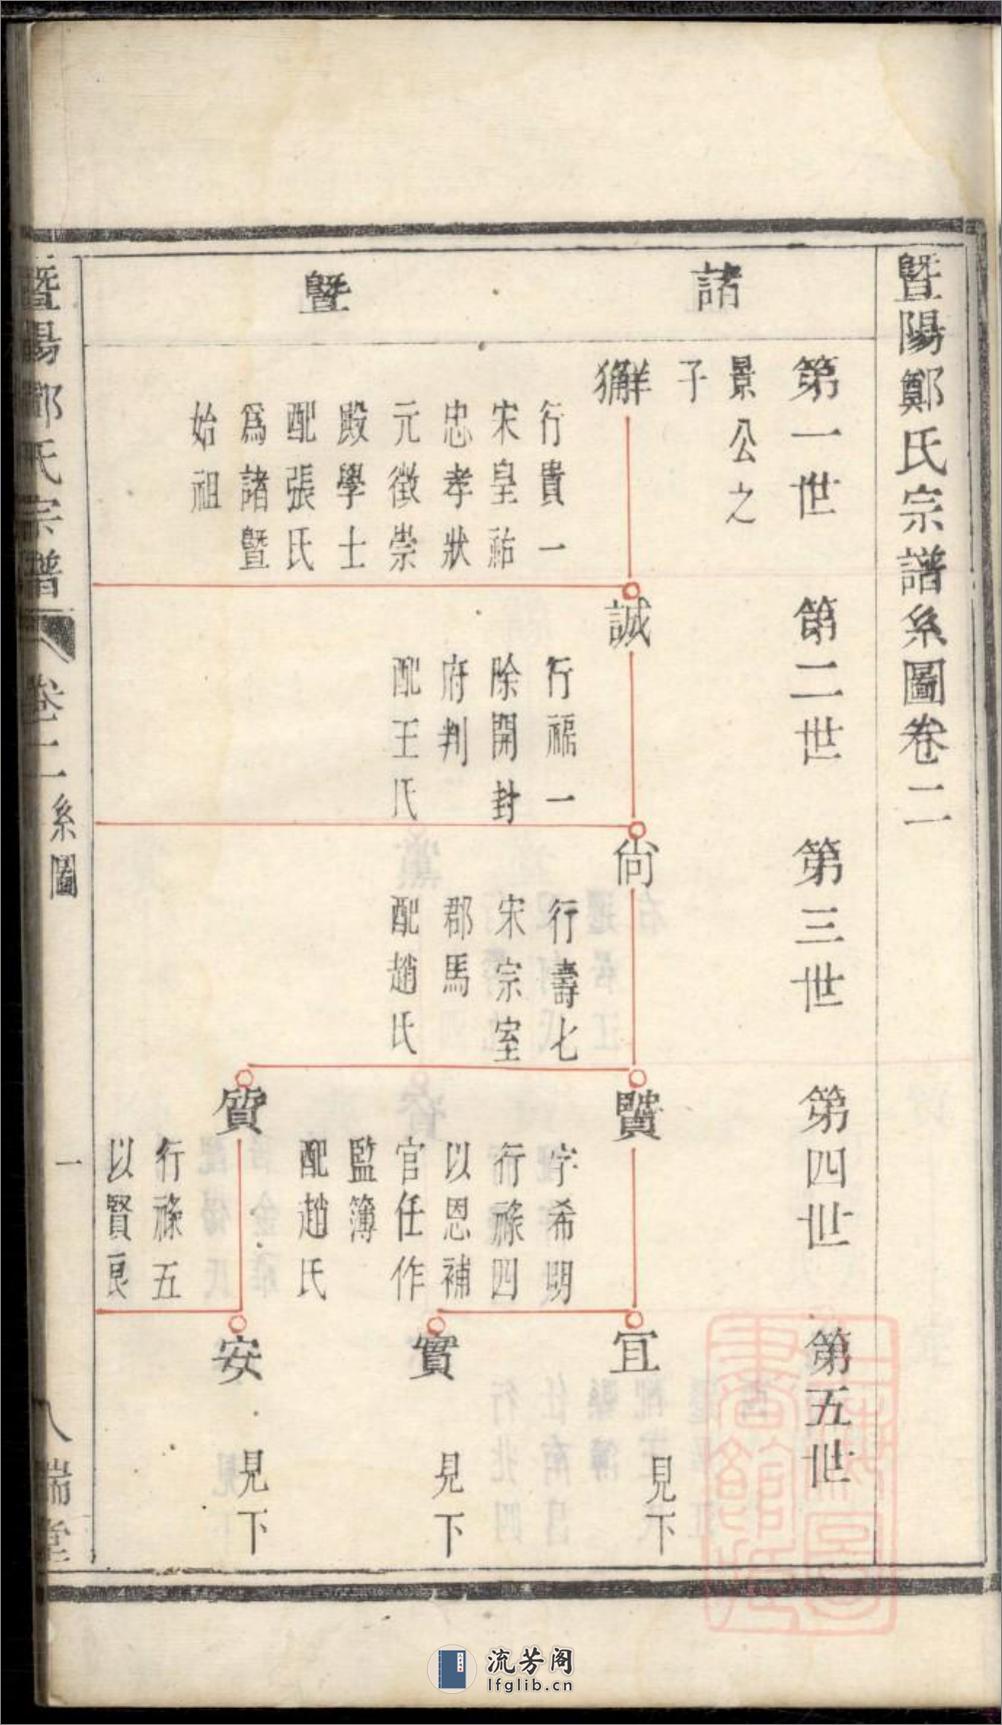 暨陽鄭氏宗譜系圖卷二
諸暨
第一世
景公之
子
行貴一
宋皇祐
忠孝狀
元徵崇
殿學士
配張氏
為諸暨
始祖
第二世
誠
行福一
除開封
府判
配王氏
第三世
尙
行壽七
宋宗室
郡馬
配趙氏
第四世
賢
字希明
行祿四
以恩補
官任作
監簿
配趙氏
質
行祿五
以賢良
第五世
宜
見下
實
見下
安
見下
暨陽鄭氏宗譜
卷二 系圖
一
八瑞堂
流芳阁
lfglib.cn